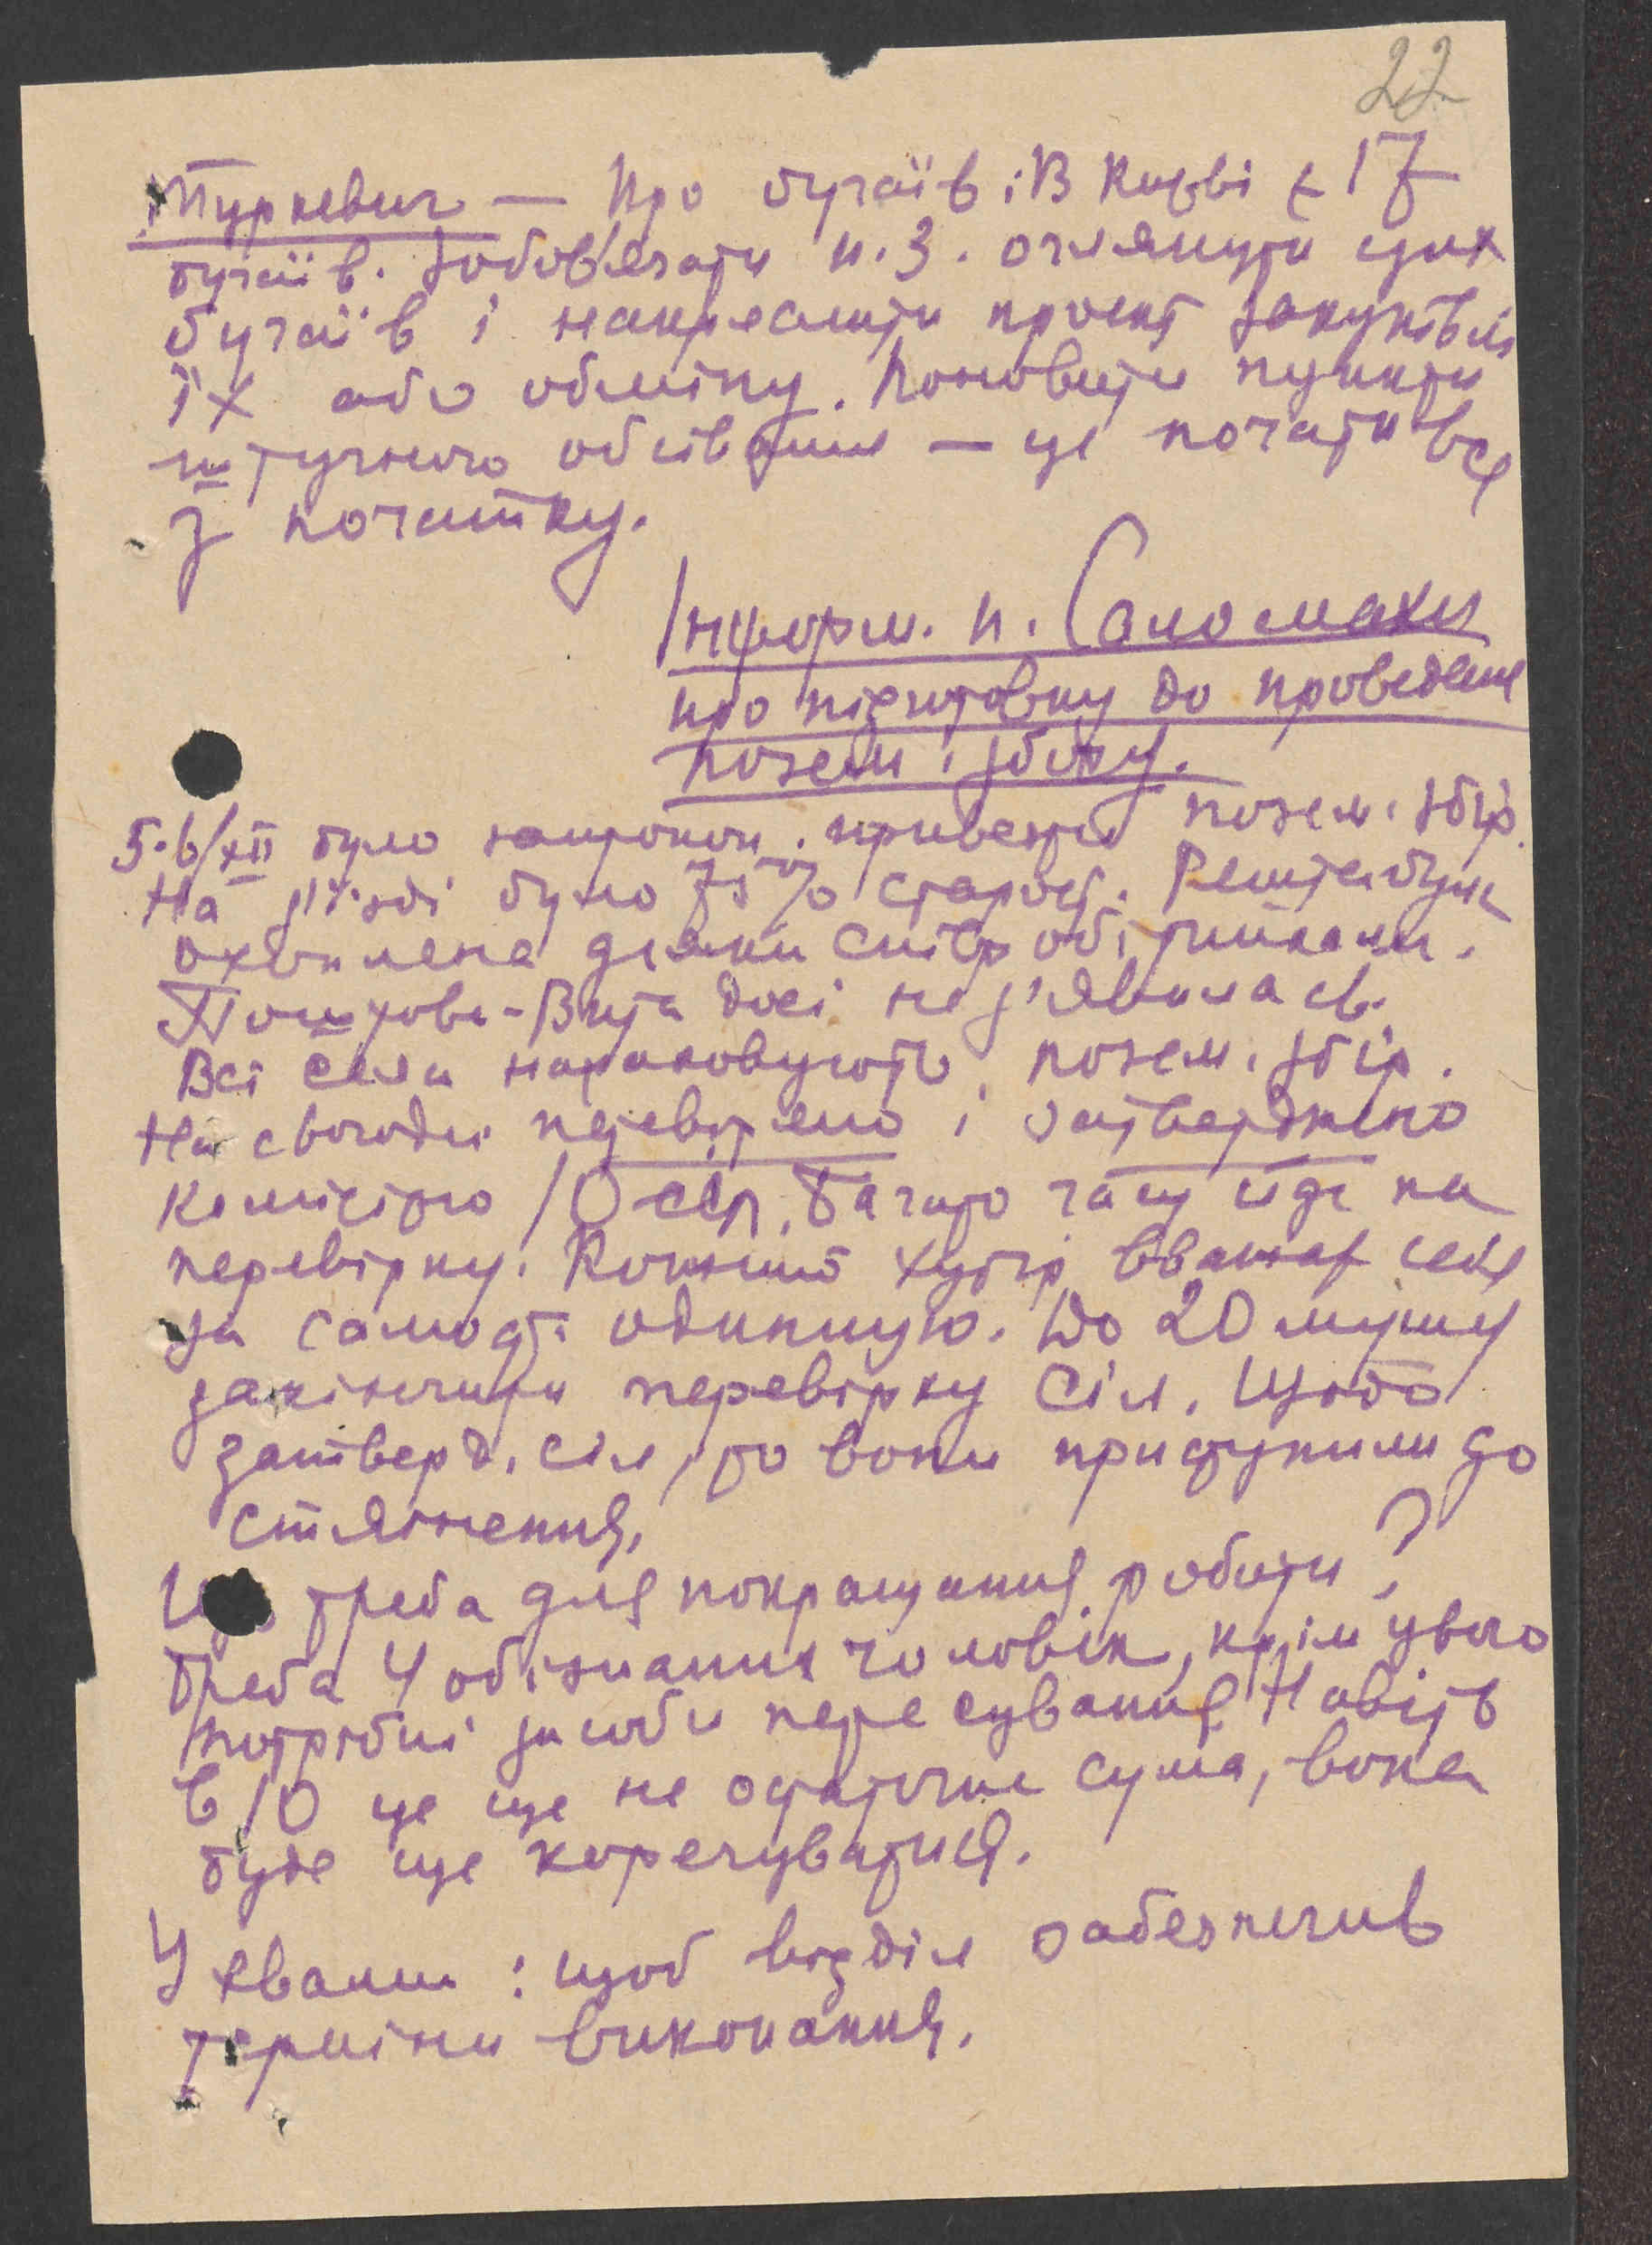 22
Туркевич — Про бугаїв. В Києві є 17
бугаїв. Зобов'язати п. З. оглянути цих
бугаїв і накреслити проект закупівлі
їх або обміну. Поновити пункти
штучного обсіван — це почати все
з початку.
Інформ. п. Соломахи
про підготовку до проведення
позем. збору.
5.6/XII було запропон. привезти позем. збір.
На з'їзді було 75% старост. Решта була
охоплена співробітниками.
Поштова-Вита досі не з'явилась.
Всі села нараховують позем. збір.
На сьогодні перевірено і затверджено
комісією 10 сіл. Багато часу йде на
перевірку. Кожний хутір вважає себе
за самост. одиницю. До 20 мушу
закінчити перевірку сіл. Щодо
затверд. сіл, то вони приступили до
стягнення.
Що треба для покращання роботи?
Треба 4 обізнаних чоловік, крім цього
потрібні засоби пересування. Навіть
в 10 це ще не остаточна сума, вона
буде ще корегуватися.
Ухвалили: щоб відділ забезпечив
терміни виконання.